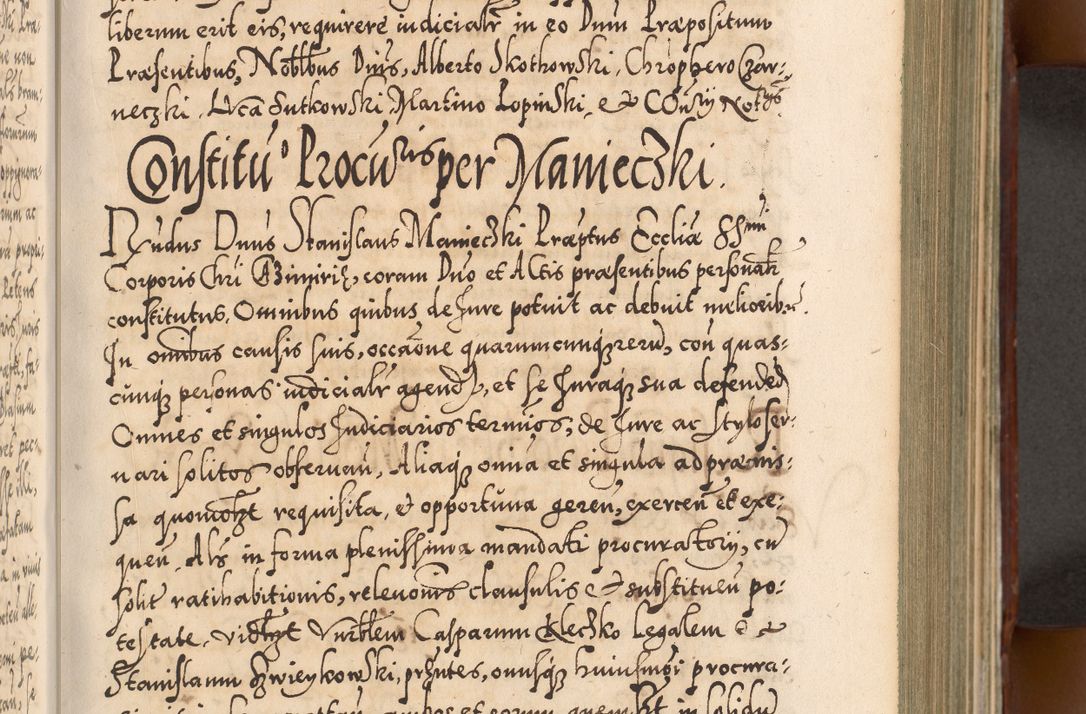 liberum erit eis, requirere iudicialr in eo Dnm Præpositum
Præsentibus, Nobllbus Dnis, Alberto Skotkowski, Chrophero Czar-
neczki, Luca Sutkowski Martino Lopinski, & Consy Notys.
Constitu° Procuris per Manieczki.
Nudus Dnus Stanislaus Manieczki Præptus Ecclię SSmi
Corporis Chri coram Dno et Actis præsentibus personalr
constitutus, Omnibus quibus de Jure potuit ac debuit melioribus.
In omnibus causis suis, occaone quarumcunqz rerū, con quas-
cunqz personas iudicialr agend, et se Juraqz sua defended
Omnes et singulos Judiciarios termios, de Jure ac Stylo ser-
uari solitos obseruan, Aliaqz omia et singula ad præmis-
sa quomolzt requisita, & opportuna geren, exercen et exe-
quen. Als in forma plenissima mandati procuratory, cū
solit ratihabitionis, releuonis clausulis & substituen po-
testate, vidlzt Vnrblem Casparum Kleczko Legalem &
Stanislaum prsntes, onusqz huiusmoi procura-